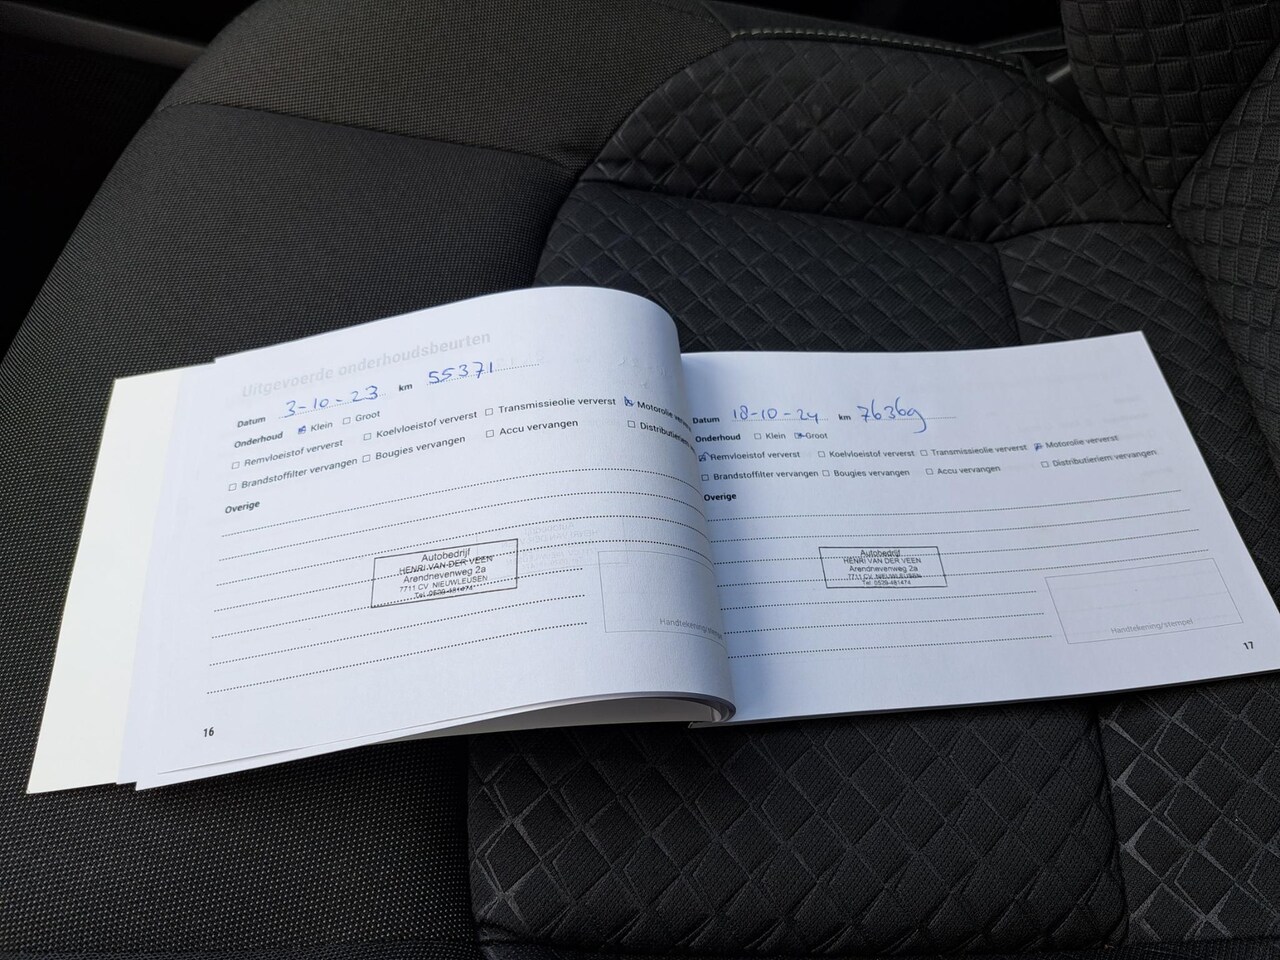 Uitgevoerde onderhoudsbeurten
Datum 3-10-23 km 55371
Onderhoud Klein Groot
Remvloeistof ververst Koelvloeistof ververst Transmissieolie ververst Motorolie
Brandstoffilter vervangen Bougies vervangen Accu vervangen
Overige
Autobedrijf
HENRI VAN DER VEEN
Arendnevenweg 2a
7711 CV NIEUWLEUSEN
Tel. 0529-481474
Handtekening/stempel
16
Datum 18-10-24 km 76369
Onderhoud Klein Groot
Remvloeistof ververst Koelvloeistof ververst Transmissieolie ververst Motorolie ververst
Brandstoffilter vervangen Bougies vervangen Accu vervangen Distributieriem vervangen
Overige
Autobedrijf
HENRI VAN DER VEEN
Arendnevenweg 2a
7711 CV NIEUWLEUSEN
Tel. 0529-481474
Handtekening/stempel
17